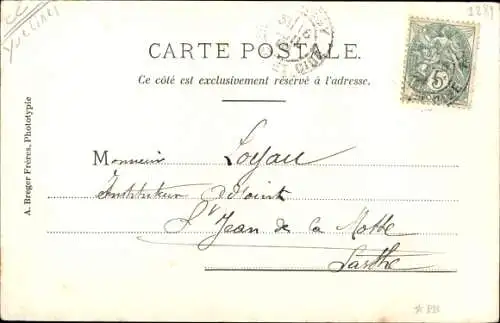 Yvelines
1289
CARTE POSTALE.
Ce côté est exclusivement réservé à l'adresse.
5
A. Breger Frères, Phototypie
Monsieur Loyau
Instituteur Adjoint
St Jean de la Motte
Sarthe